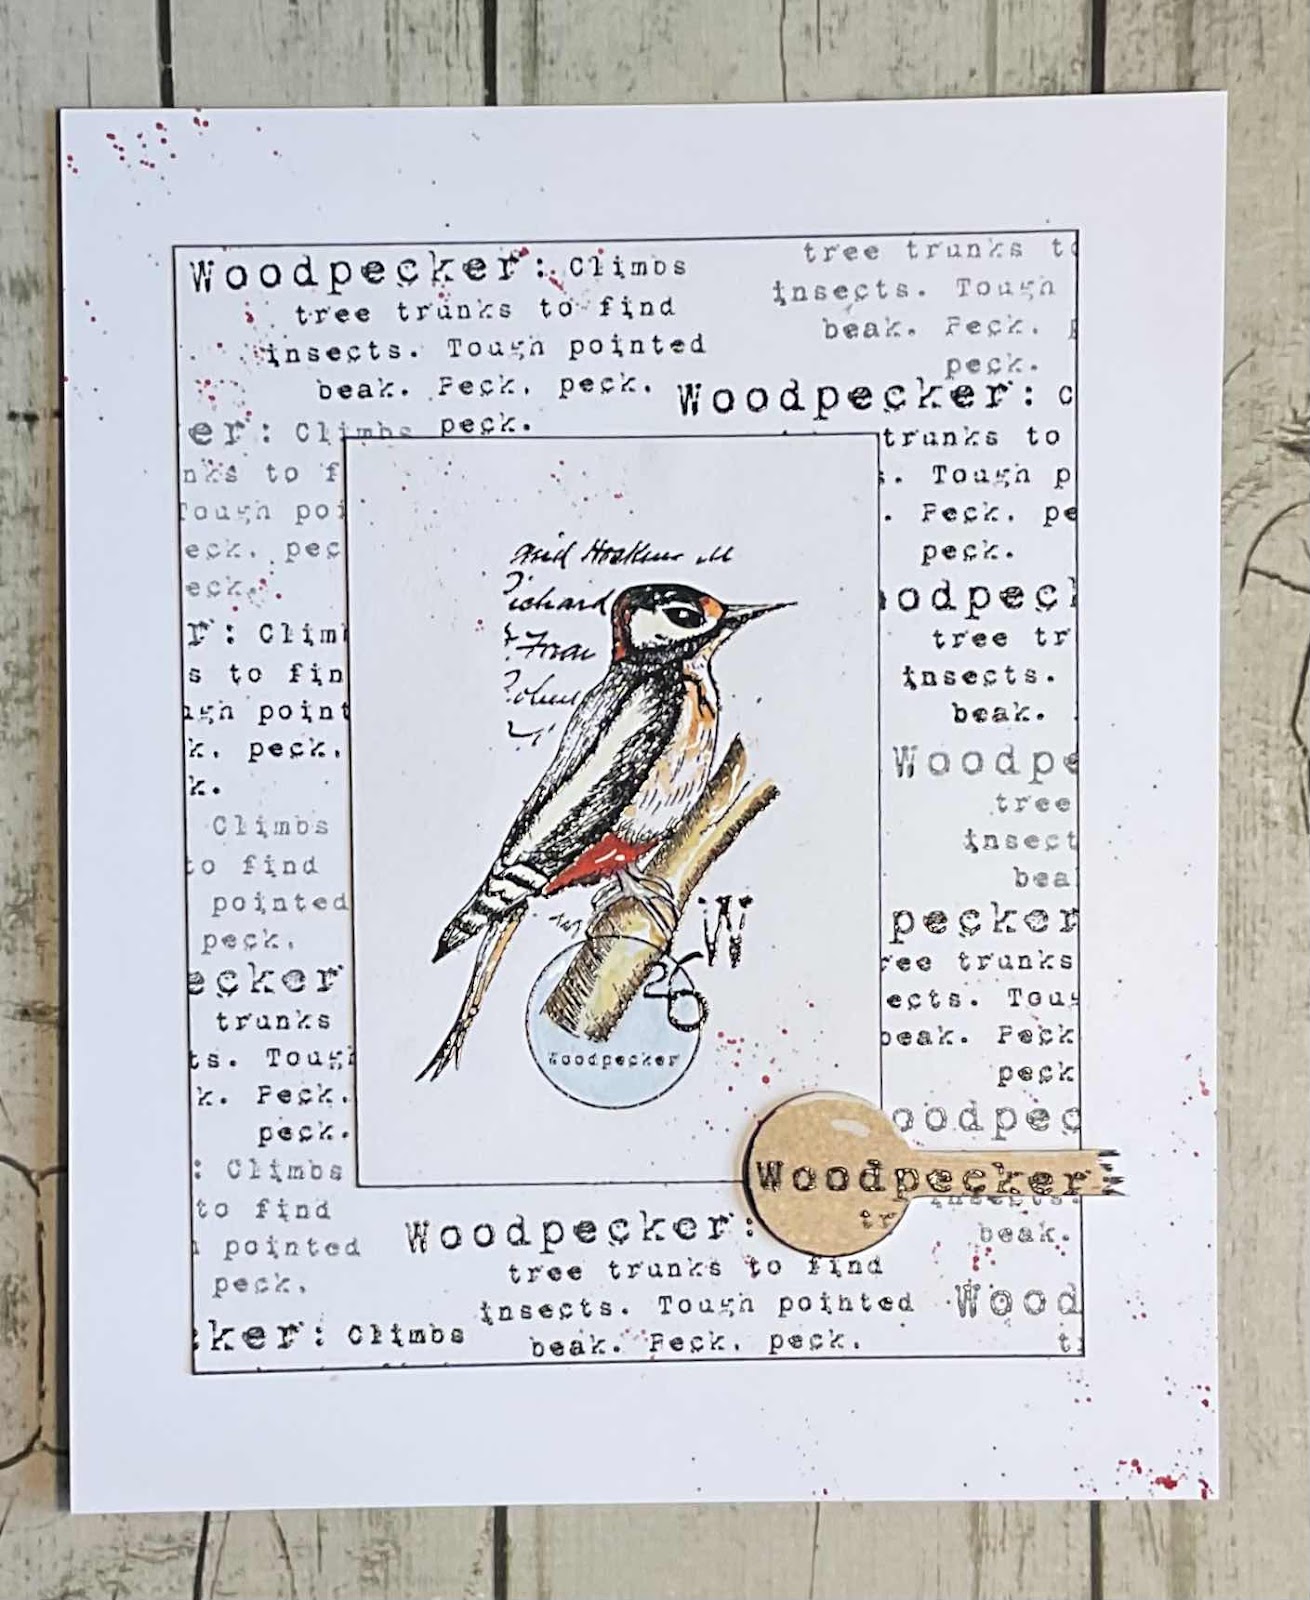 Woodpecker: Climbs
tree trunks to find
insects. Tough pointed
beak. Peck, peck,
peck.
tree trunks to
insects. Tough
beak. Peck,
peck.
Woodpecker: C
trunks to
. Tough p
. Peck, pe
peck.
oodpeck
tree tr
insects.
beak.
Woodpe
tree
insect
bea
pecker
ree trunks
ects. Toug
beak. Peck
peck
oodpec
insects.
beak.
Wood
er: Climbs
nks to f
Tough poi
eck, pec
eck.
r: Clim
s to fin
ugh point
k, peck,
k.
Climbs
to find
pointed
peck,
ecker
trunks
ts. Tough
k. Peck,
peck.
: Climbs
to find
pointed
peck,
cker: Climbs
Woodpecker:
tree trunks to find
insects. Tough pointed
beak. Peck, peck,
Richard
W
26
Woodpecker
Woodpecker
tr